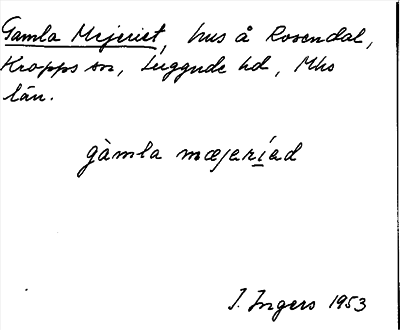 Gamla Mejeriet, hus å Rosendal,
Kropps sn, Luggude hd, Mhs
län.
gàmla mæjeríad
I. Ingers 1953